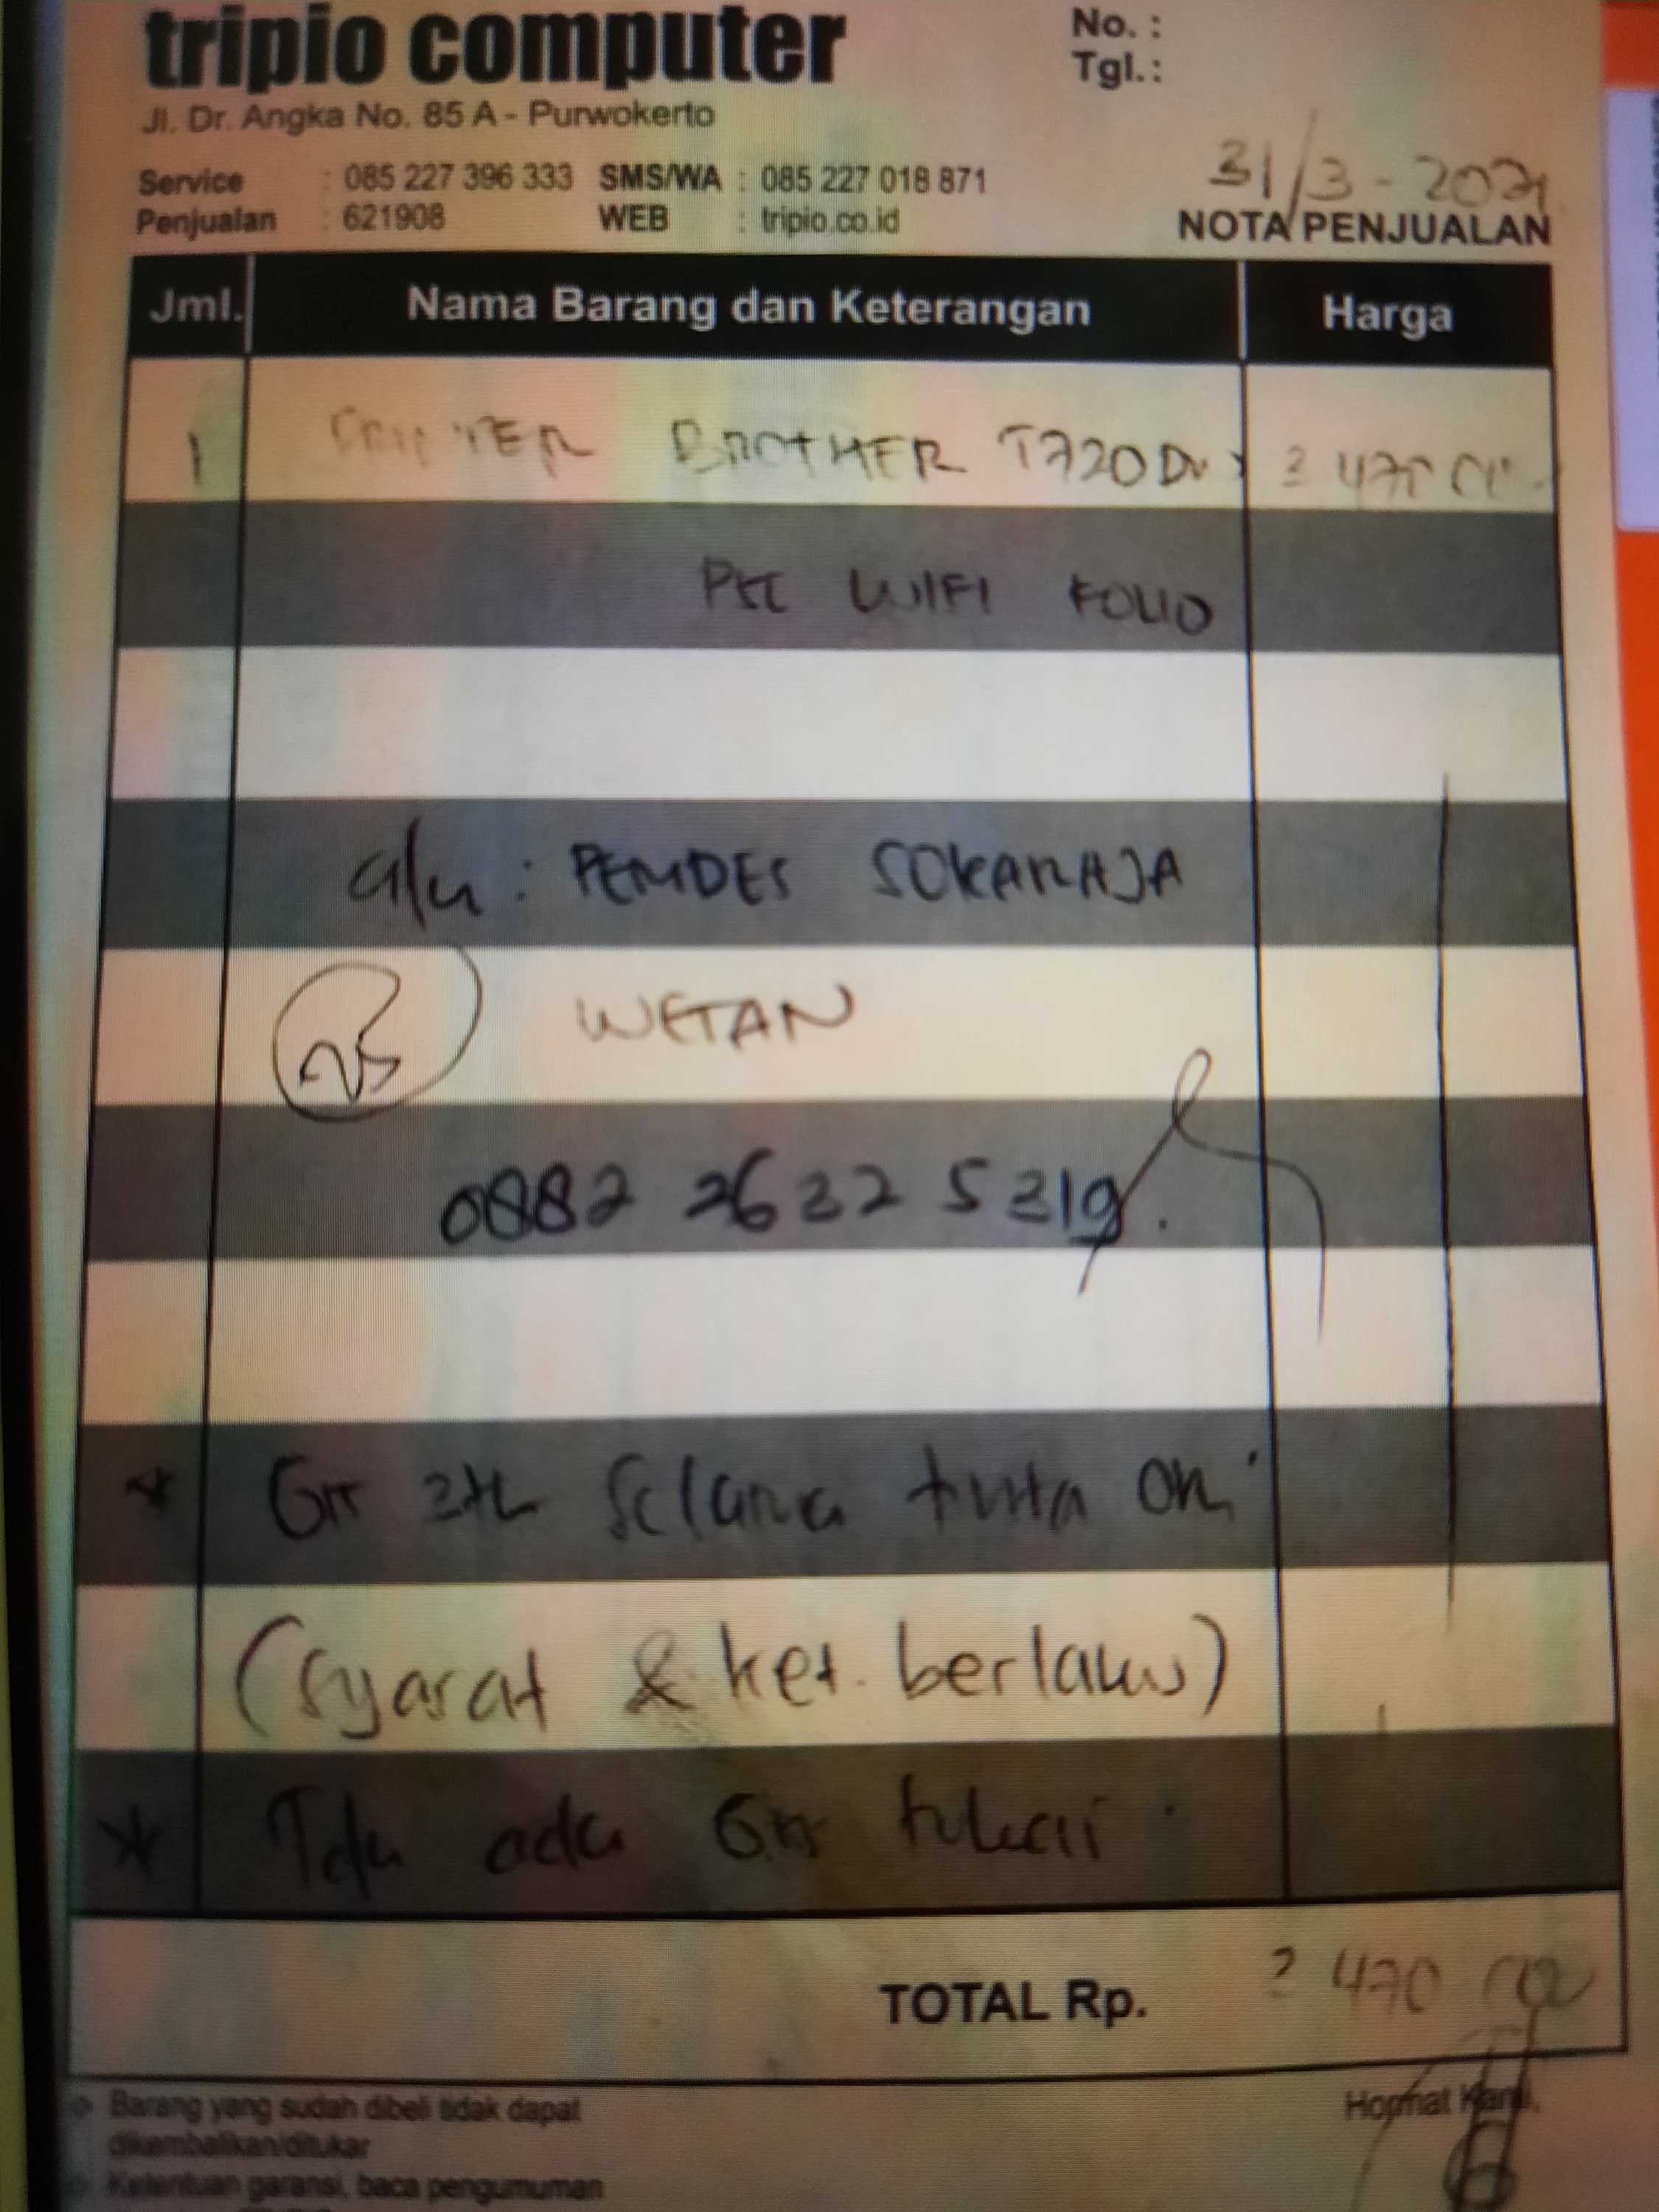 tripio computer
No. :
Tgl. :
Jl. Dr. Angka No. 85 A - Purwokerto
Service : 085 227 396 333 SMS/WA : 085 227 018 871
Penjualan : 621908 WEB : tripio.co.id
31/3 - 2021
NOTA PENJUALAN
Jml. Nama Barang dan Keterangan Harga
1 PRINTER BROTHER T720DW 3 470
PSC WIFI FOLIO
a/n : PEMDES SOKARAJA
WETAN
0882 2632 5319.
* Grr 2th selama tinta ori
(syarat & ket. berlaku)
* Tdk ada Grr tukar
TOTAL Rp. 3 470
Hormat Kami,
Barang yang sudah dibeli tidak dapat
dikembalikan/ditukar
Ketentuan garansi, baca pengumuman